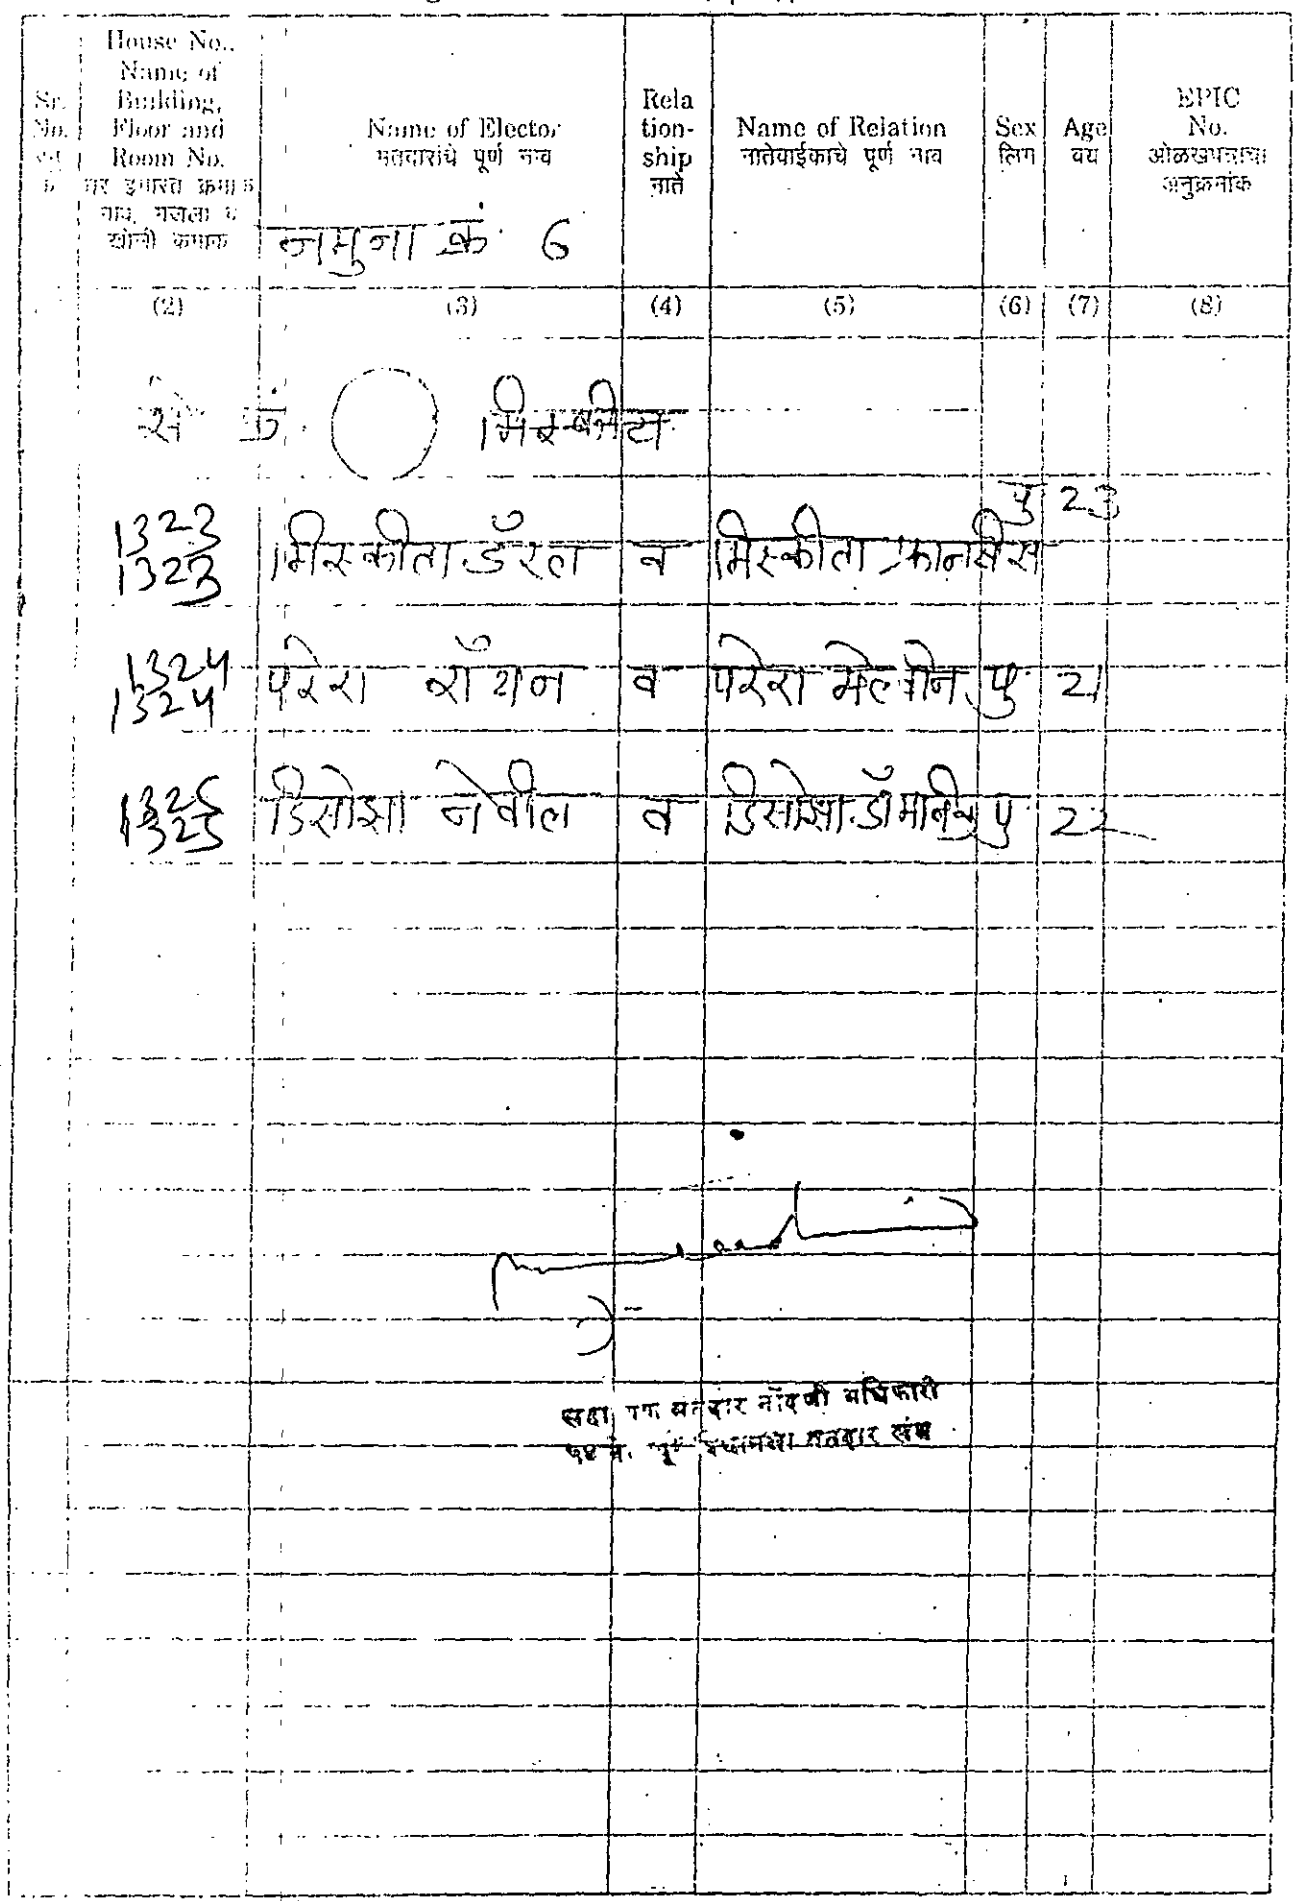 Sr. No.
House No., Name of Building, Floor and Room No. घर इमारत क्रमांक नाव, मजला व खोली क्रमांक
Name of Elector मतदारांचे पूर्ण नाव
Relation-ship नाते
Name of Relation नातेवाईकाचे पूर्ण नाव
Sex लिंग
Age वय
EPIC No. ओळखपत्राचा अनुक्रमांक
नमुना क्रं 6
(2) (3) (4) (5) (6) (7) (8)
से क्रं
1323 पु 23
1323 मिस्कीता डॅरल व मिस्कीता फ्रानसीस
1324
1324 परेरा रॉयन व परेरा मेलवीन पु 21
1325
1325 डिसोझा नेवील व डिसोझा डॉमनिक पु 22
मतदार नोंदणी अधिकारी
मतदार संघ